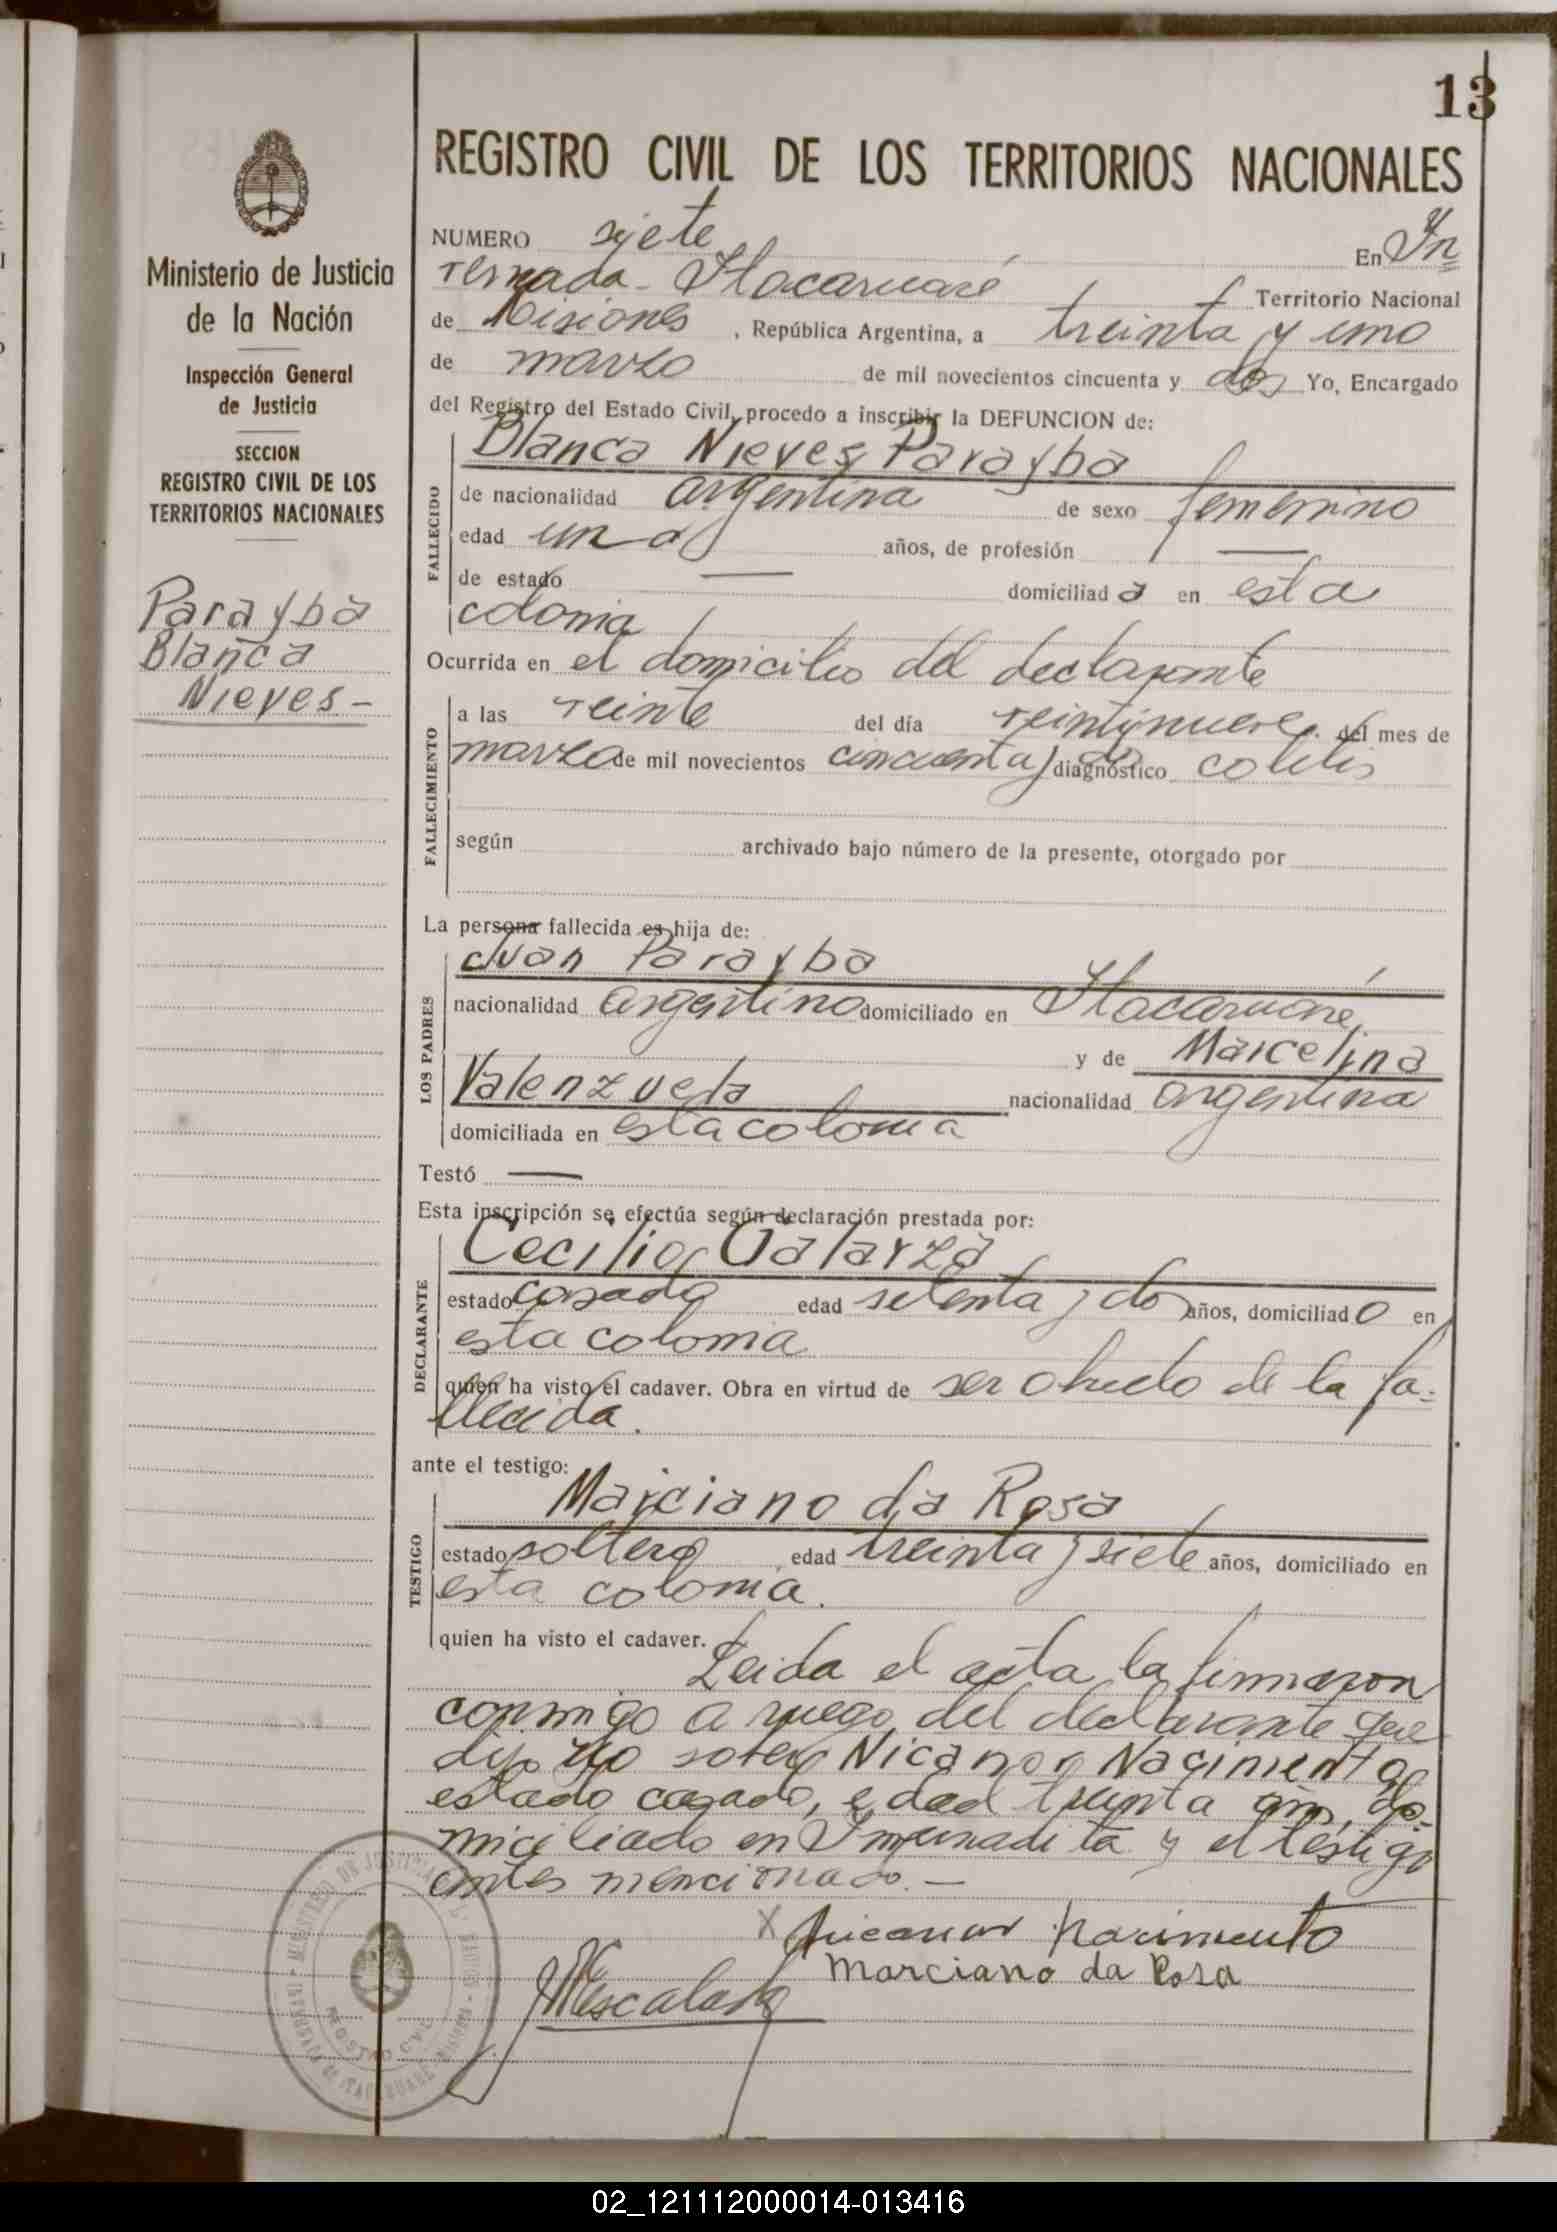 13
REGISTRO CIVIL DE LOS TERRITORIOS NACIONALES
Ministerio de Justicia
de la Nación
Inspección General
de Justicia
SECCION
REGISTRO CIVIL DE LOS
TERRITORIOS NACIONALES
Parayba
Blanca
Nieves -
NUMERO siete En In
vernada - Itacaruaré Territorio Nacional
de Misiones , República Argentina, a treinta y uno
de marzo de mil novecientos cincuenta y dos Yo, Encargado
del Registro del Estado Civil, procedo a inscribir la DEFUNCION de:
Blanca Nieves Parayba
FALLECIDO
de nacionalidad argentina de sexo femenino
edad un a años, de profesión —
de estado — domiciliad a en esta
colonia
Ocurrida en el domicilio del declarante
FALLECIMIENTO
a las veinte del día veintinueve del mes de
marzo de mil novecientos cincuenta y dos diagnóstico colitis
según archivado bajo número de la presente, otorgado por
La persona fallecida es hija de:
Juan Parayba
LOS PADRES
nacionalidad argentino domiciliado en Itacaruaré,
y de Marcelina
Valenzuela nacionalidad argentina
domiciliada en esta colonia
Testó —
Esta inscripción se efectúa según declaración prestada por:
Cecilio Galarza
DECLARANTE
estado casado edad setenta y dos años, domiciliad o en
esta colonia
quien ha visto el cadaver. Obra en virtud de ser abuelo de la fa-
llecida.
ante el testigo:
Marciano da Rosa
TESTIGO
estado soltero edad treinta y siete años, domiciliado en
esta colonia.
quien ha visto el cadaver.
Leida el acta la firmaron
conmigo a ruego del declarante que
dijo no saber Nicanor Nacimento
estado casado, edad treinta años, do-
miciliado en y el testigo
antes mencionado. —
x Nicanor Nacimento
Marciano da Rosa
Escalada
MINISTERIO DE JUSTICIA
REGISTRO CIVIL
02_121112000014-013416